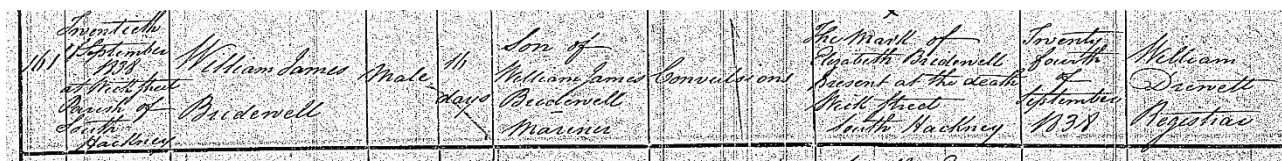 161
Twentieth
September
1838
at Wick Street
Parish of
South
Hackney
William James
Bridewell
Male
16
days
Son of
William James
Bridewell
Mariner
Convulsions
X
The Mark of
Elizabeth Bridewell
Present at the death
Wick Street
South Hackney
Twenty
fourth
of
September
1838
William
Drewett
Registrar